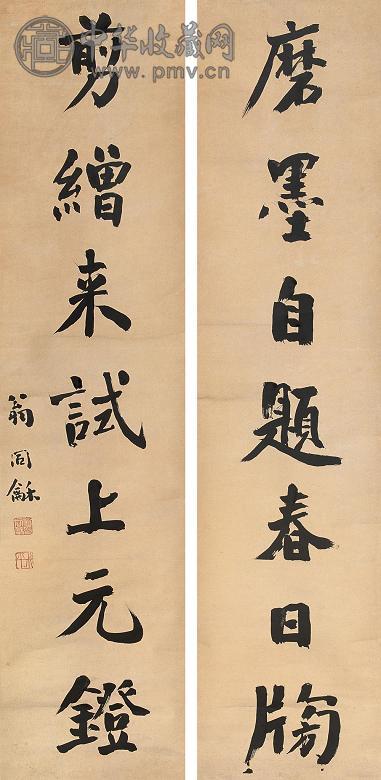 磨墨自題春日牓
剪繒来試上元鐙
翁同龢
中华收藏网
www.pmv.cn